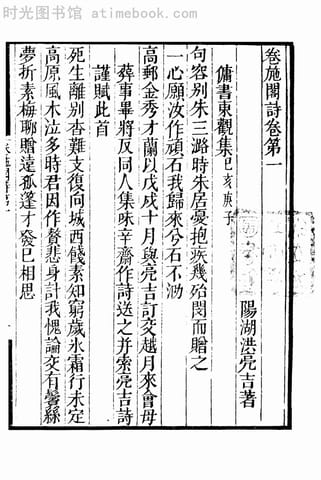 时光图书馆 — atimebook.com
卷施閣詩卷第一
陽湖洪亮吉著
傭書東觀集己亥庚子
句容别朱三潞時朱居憂抱疾幾殆閔而贈之
一心願汝作頑石我歸來兮石不泐
高郵金秀才蘭以戊戌十月與亮吉訂交越月來會母
葬事畢將反同人集味辛齋作詩送之并索亮吉詩
謹賦此首
死生離别杳難支復向城西餞素知窮歲氷霜行未定
高原風木泣多時君因作贅悲身計我愧論交有鬢絲
夢折素梅聊贈遠孤蓬才發巳相思